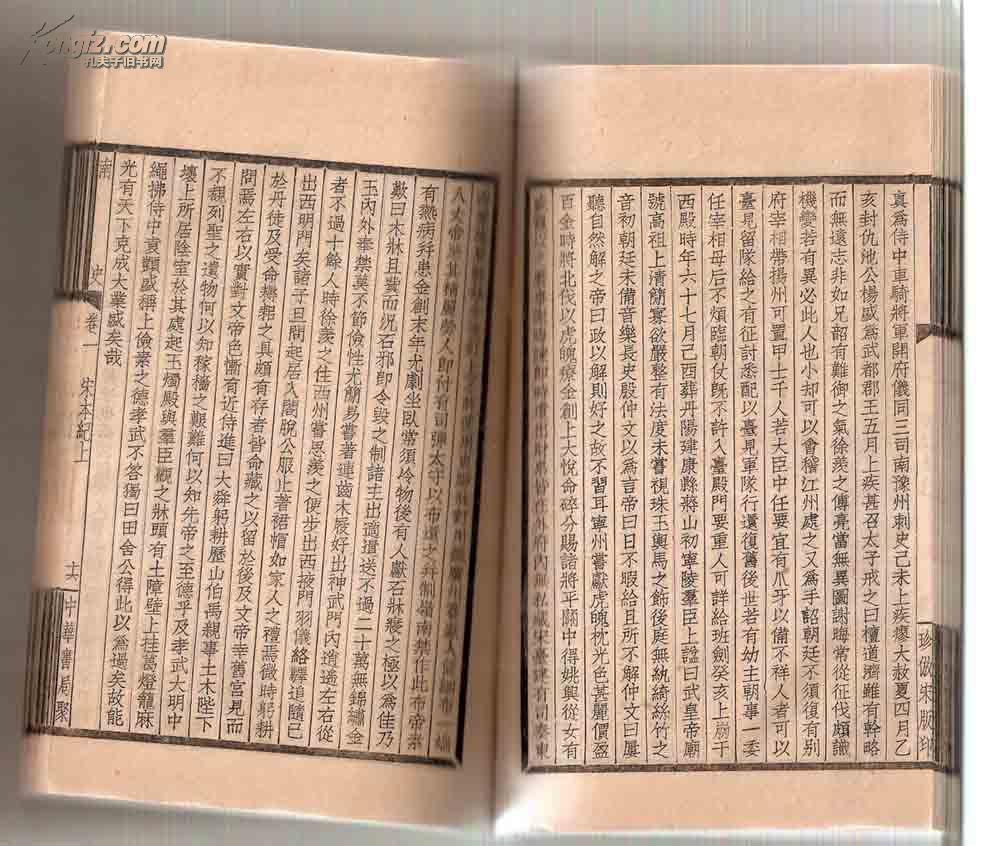 Kongfz.com
孔夫子旧书网
真爲侍中車騎將軍開府儀同三司南豫州刺史己未上疾瘳大赦夏四月乙
亥封仇池公楊盛爲武都郡王五月上疾甚召太子戒之曰檀道濟雖有幹略
而無遠志非如兄韶有難御之氣徐羨之傅亮當無異圖謝晦常從征伐頗識
機變若有異必此人也小却可以會稽江州處之又爲手詔朝廷不須復有別
府宰相帶揚州可置甲士千人若大臣中任要宜有爪牙以備不祥人者可以
臺見留隊給之有征討悉配以臺見軍隊行還復舊後世若有幼主朝事一委
任宰相母后不煩臨朝仗既不許入臺殿門要重人可詳給班劍癸亥上崩于
西殿時年六十七月己酉葬丹陽建康縣蔣山初寧陵羣臣上謚曰武皇帝廟
號高祖上清簡寡欲嚴整有法度未嘗視珠玉輿馬之飾後庭無紈綺絲竹之
音初朝廷未備音樂長史殷仲文以爲言帝曰日不暇給且所不解仲文曰屢
聽自然解之帝曰政以解則好之故不習耳寧州嘗獻虎魄枕光色甚麗價盈
百金時將北伐以虎魄療金創上大悅命碎分賜諸將平關中得姚興從女有
財帛皆在外府內無私藏宋臺建有司奏東
珍倣宋版印
八丈帝惡其精麗勞人即付有司彈太守以布還之并制嶺南禁作此布帝素
有熱病并患金創末年尤劇坐臥常須冷物後有人獻石牀寢之極以爲佳乃
歎曰木牀且費而況石邪即令毀之制諸主出適遣送不過二十萬無錦繡金
玉內外奉禁莫不節儉性尤簡易嘗著連齒木屐好出神武門內逍遙左右從
者不過十餘人時徐羨之住西州嘗思羨之便步出西掖門羽儀絡驛追隨已
出西明門矣諸子旦問起居入閤脫公服止著裙帽如家人之禮焉微時躬耕
於丹徒及受命耨耜之具頗有存者皆命藏之以留於後及文帝幸舊宮見而
問焉左右以實對文帝色慚有近侍進曰大舜躬耕歷山伯禹親事土木陛下
不覩列聖之遺物何以知稼穡之艱難何以知先帝之至德乎及孝武大明中
壞上所居陰室於其處起玉燭殿與羣臣觀之牀頭有土障壁上挂葛燈籠麻
繩拂侍中袁顗盛稱上儉素之德孝武不答獨曰田舍公得此以爲過矣故能
光有天下克成大業盛矣哉
南 史 卷一 宋本紀上 十六 中華書局聚